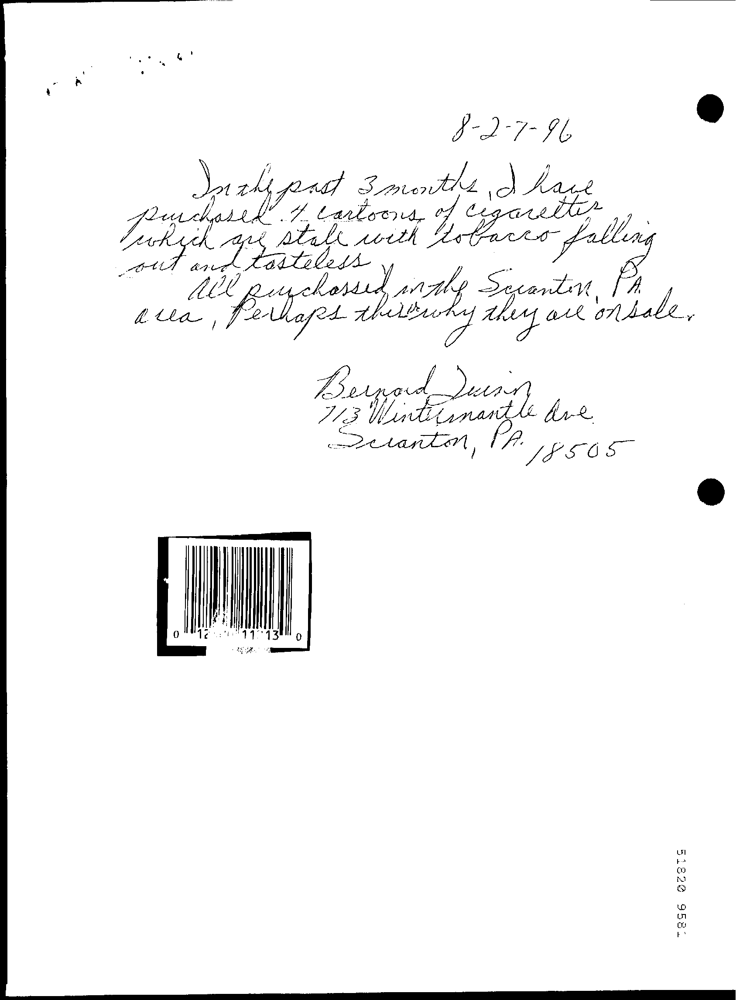 8-27-96
In the past 3 months, I have
purchased 4 cartoons of cigarettes
which are stale with tobacco falling
out and tasteless
All purchassed in the Scranton, PA
area, Perhaps this is why they are on sale.
Bernard
713 Wintermantle Ave
Scranton, PA. 18505
0 12 11113 0
51820 9581